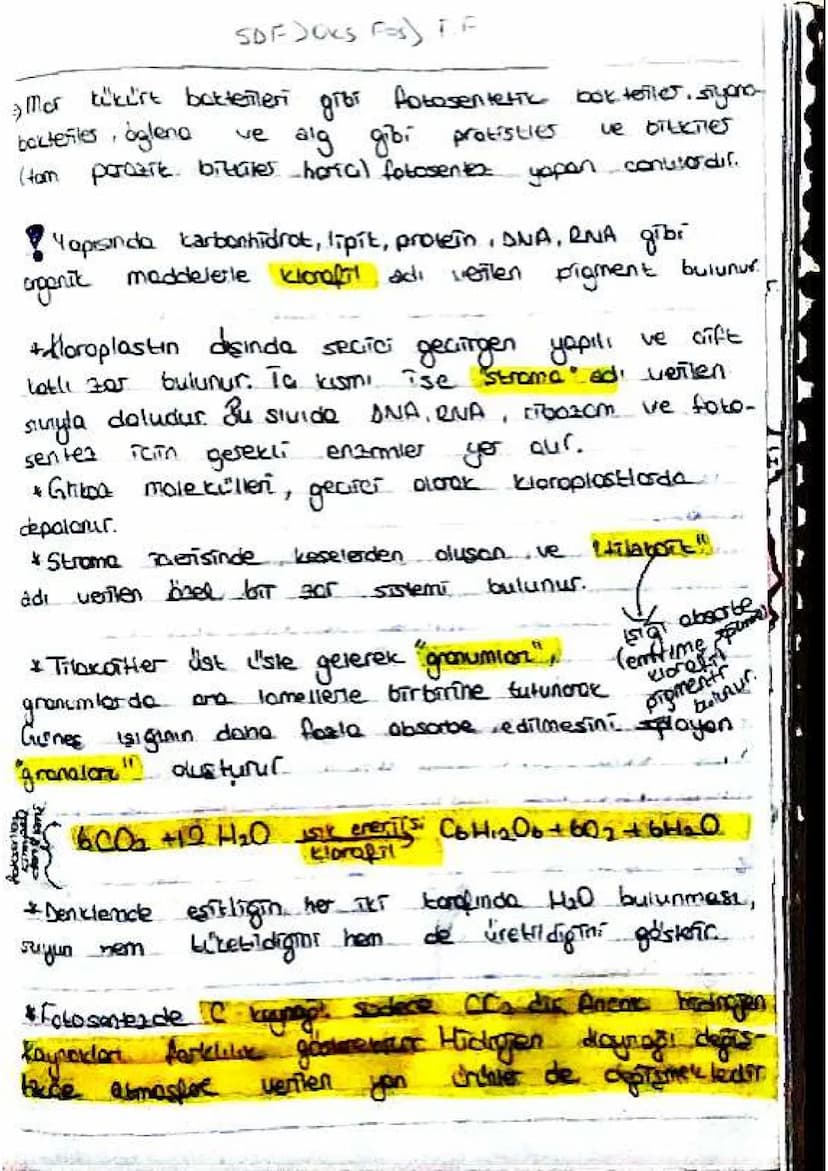 → Mor kükürt bakterileri gibi fotosentetik bakteriler, siyano-
bakteriler, öglena ve alg gibi protistler ve bitkiler
(tam parazit bitkiler harici) fotosentez yapan canlılardır.
! Yapısında karbonhidrat, lipit, protein, DNA, RNA gibi
organik maddelerle klorofil adı verilen pigment bulunur.
* Kloroplastın dışında seçici geçirgen yapılı ve çift
katlı zar bulunur. İç kısmı ise "stroma" adı verilen
sıvıyla doludur. Bu sıvıda DNA, RNA, ribozom ve foto-
sentez için gerekli enzimler yer alır.
* Glikoz molekülleri, geçici olarak kloroplastlarda
depolanır.
* Stroma içerisinde keselerden oluşan ve "tilakoit"
adı verilen özel bir zar sistemi bulunur.
ışığı absorbe
(emtrime yapma)
klorofil
pigmenti
bulunur.
* Tilakoitler üst üste gelerek "granumları",
granumlarda ara lamellerle birbirine tutunarak
Güneş ışığının daha fazla absorbe edilmesini sağlayan
"granaları" oluşturur.
6CO2 + 12 H2O ışık enerjisi klorofil → C6H12O6 + 6O2 + 6H2O
* Denklemde eşitliğin her iki tarafında H2O bulunması,
suyun hem tüketildiğini hem de üretildiğini gösterir.
* Fotosentezde C kaynağı sadece CO2 dir. Ancak hidrojen
kaynakları farklılık göstermektedir Hidrojen kaynağı değiş-
tikçe atmosfere verilen yan ürünler de değişmektedir